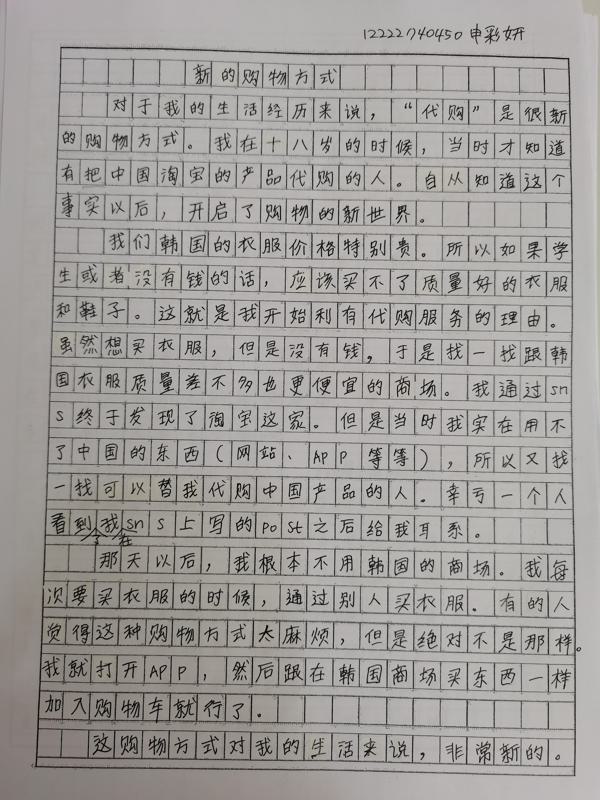 12222740450申彩妍
新的购物方式
对于我的生活经历来说，“代购”是很新
的购物方式。我在十八岁的时候，当时才知道
有把中国淘宝的产品代购的人。自从知道这个
事实以后，开启了购物的新世界。
我们韩国的衣服价格特别贵。所以如果学
生或者没有钱的话，应该买不了质量好的衣服
和鞋子。这就是我开始利有代购服务的理由。
虽然想买衣服，但是没有钱，于是找一找跟韩
国衣服质量差不多也更便宜的商场。我通过sn
s终于发现了淘宝这家。但是当时我实在用不
了中国的东西（网站、APP等等），所以又找
一找可以替我代购中国产品的人。幸亏一个人
看到我在sns上写的post之后给我耳系。
那天以后，我根本不用韩国的商场。我每
次要买衣服的时候，通过别人买衣服。有的人
觉得这种购物方式太麻烦，但是绝对不是那样。
我就打开APP，然后跟在韩国商场买东西一样
加入购物车就行了。
这购物方式对我的生活来说，非常新的。